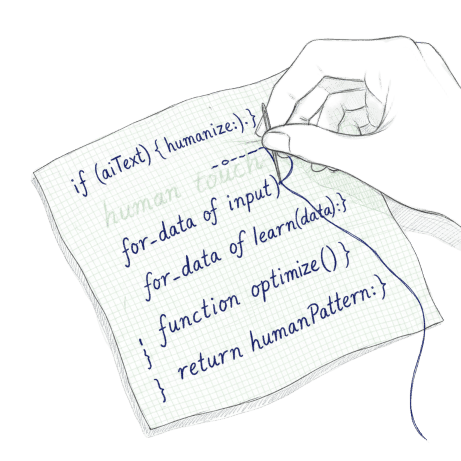 if (aiText) { humanize:).}
human touch
for-data of input)
for-data of learn(data):}
function optimize() }
}
} return humanPattern:}